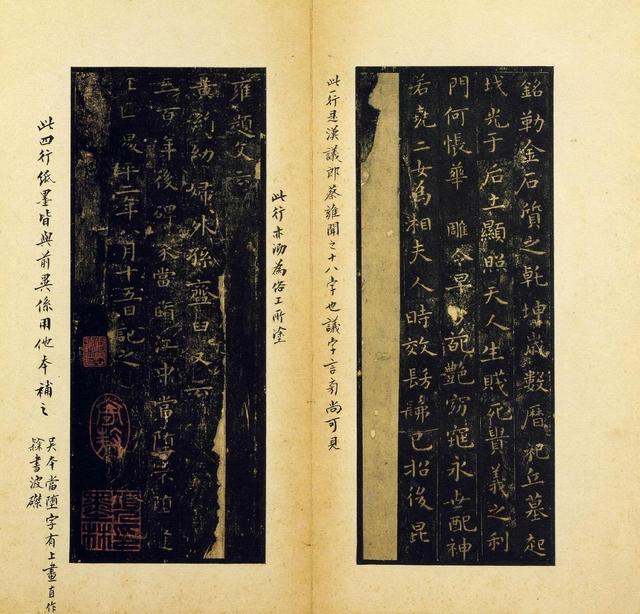 銘勒金石質之乾坤歲數曆祀丘墓起
墳光于后土顯照天人生賤死貴義之利
門何悵華 雕令早分葩艷窈窕永世配神
若堯二女為相夫人時效髣髴已招後昆
此一行是漢議郎蔡雍聞之十八字也議字言旁尚可見
此行亦泐為俗工所塗
雍題文云
黃絹幼婦外孫齏臼又云
三百年後碑冢當墮江中當墮不墮逢
王叵 二年八月十五日記之
此四行紙墨皆與前異係用他本補之
吳本當墮字有上畫直作
隸書波磔